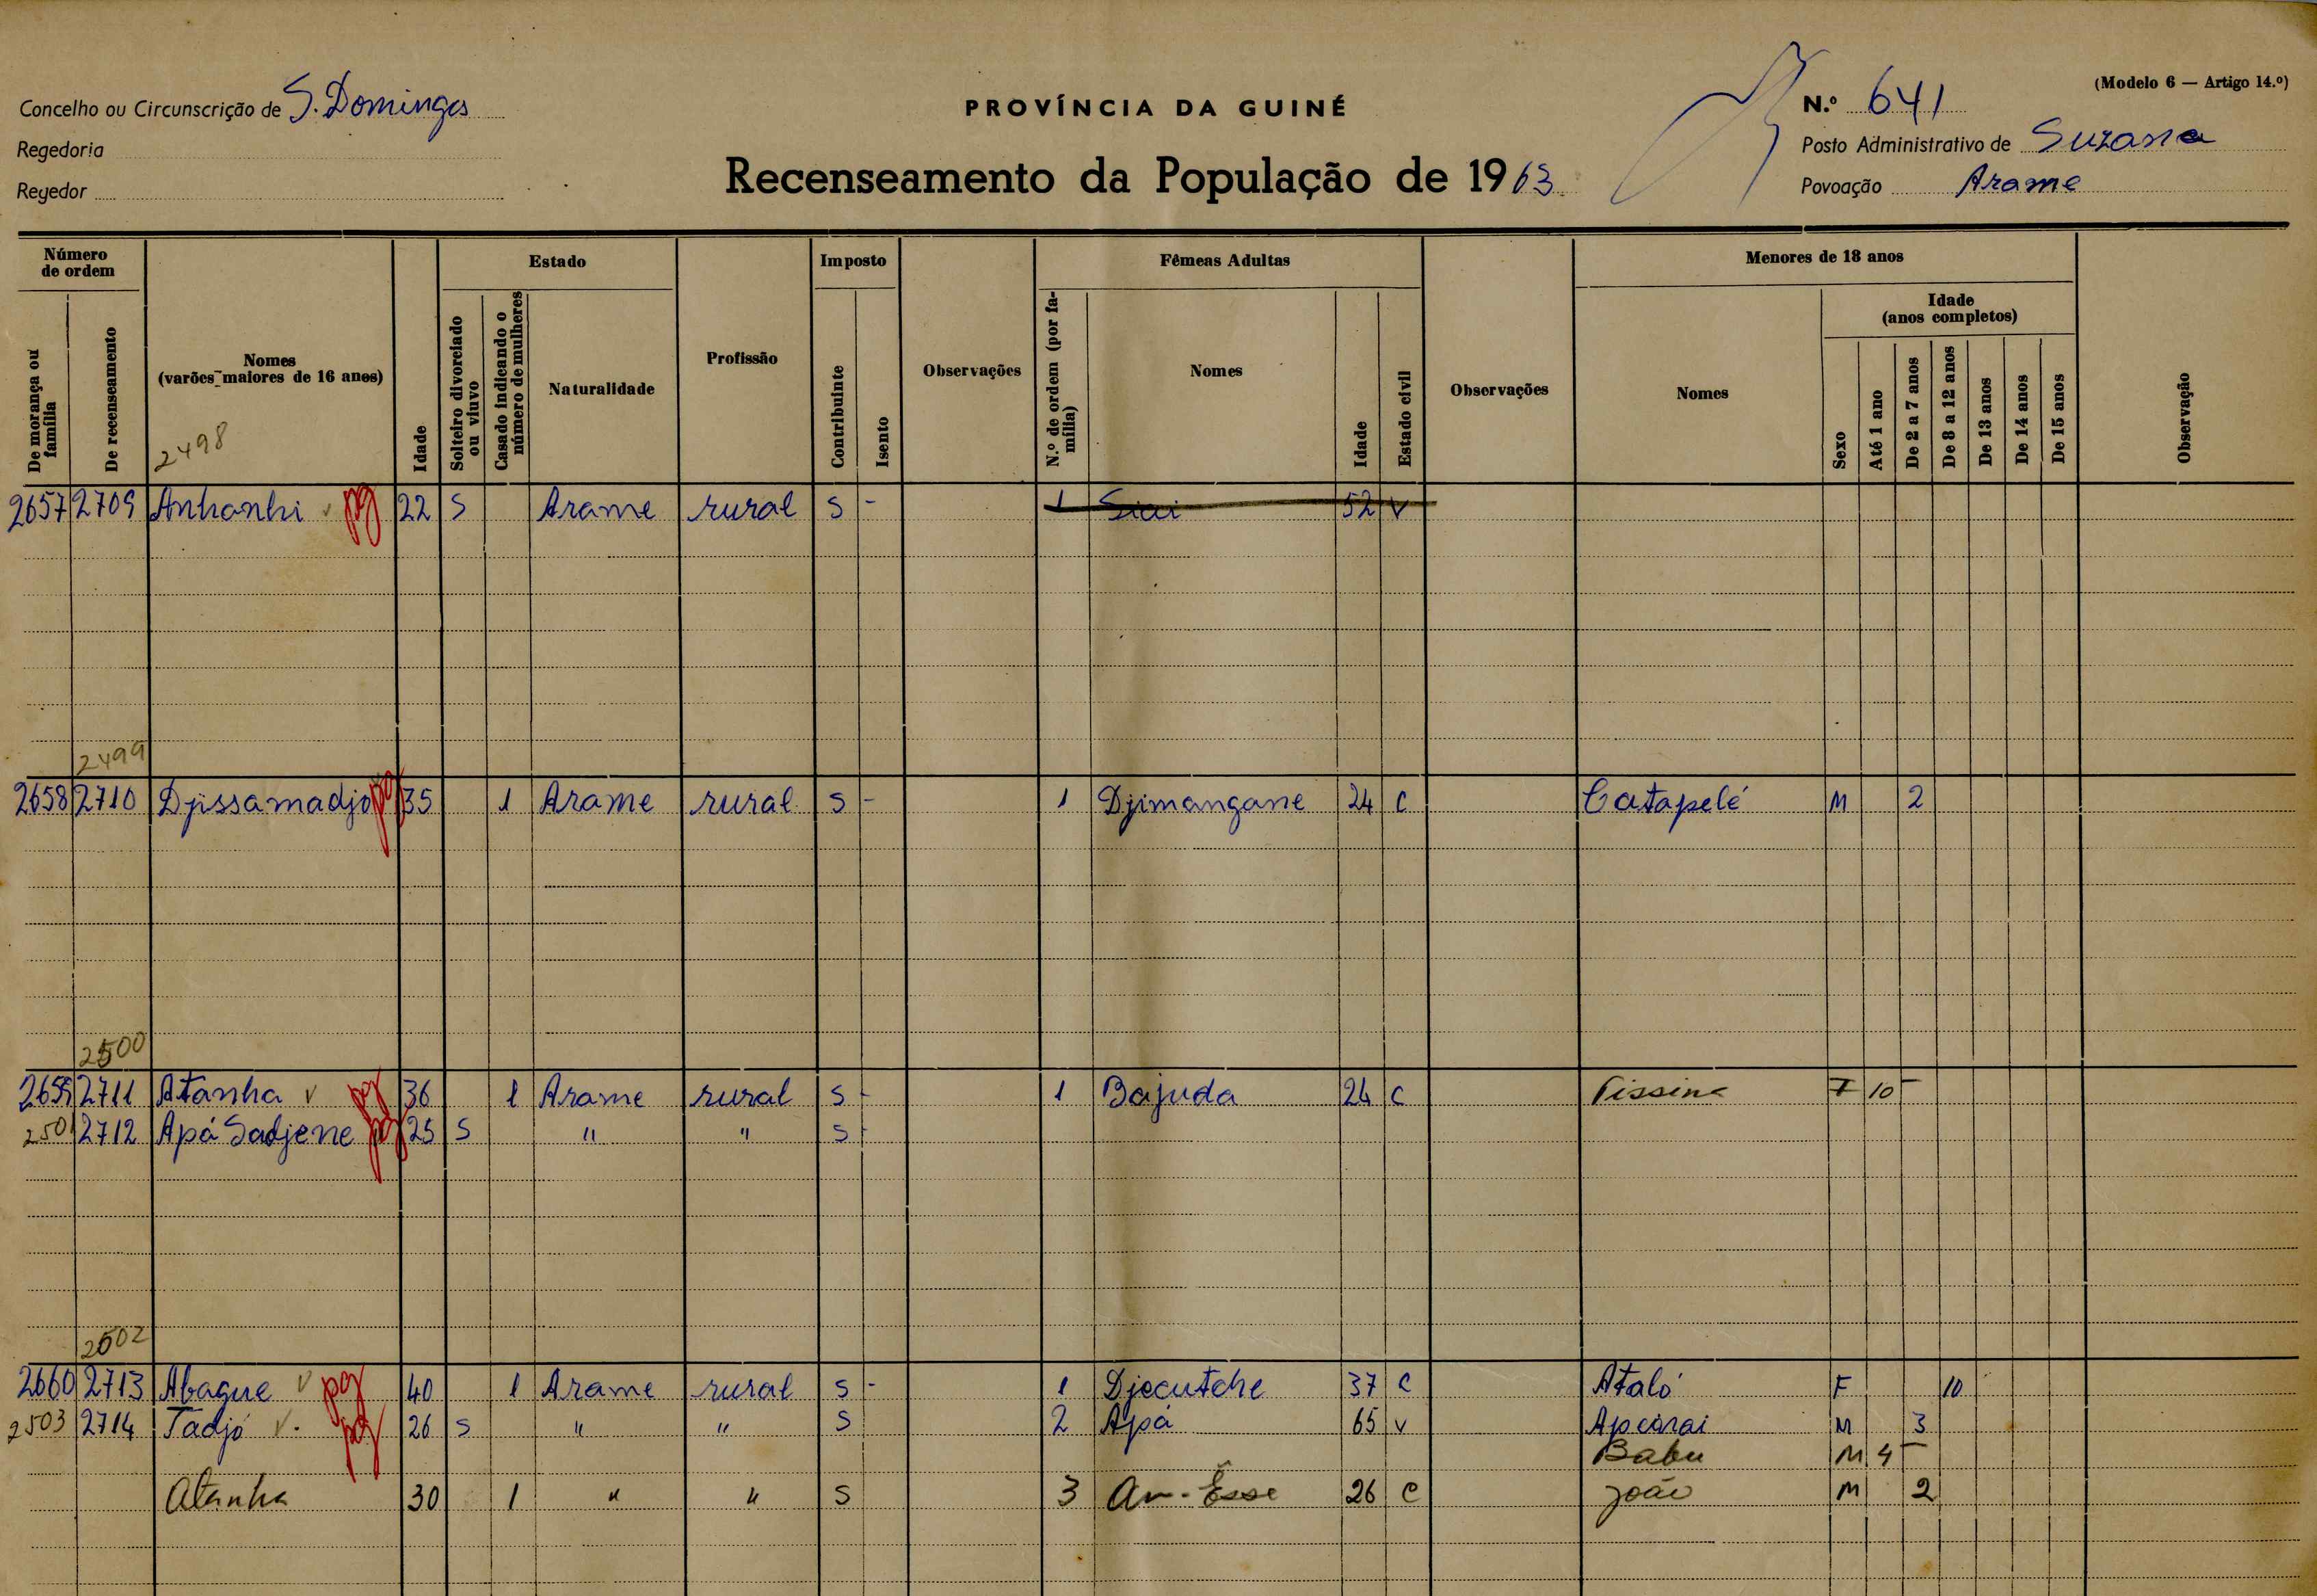 (Modelo 6 — Artigo 14.º)
Concelho ou Circunscrição de S. Domingos
PROVÍNCIA DA GUINÉ
N.º 641
Regedoria
Posto Administrativo de Suzana
Regedor
Recenseamento da População de 1963
Povoação Arame
Número de ordem
De morança ou família
De recenseamento
Nomes
(varões maiores de 16 anos)
2498
Idade
Estado
Solteiro divorciado ou viuvo
Casado indicando o número de mulheres
Naturalidade
Profissão
Imposto
Contribuinte
Isento
Observações
Fêmeas Adultas
N.º de ordem (por família)
Nomes
Idade
Estado civil
Observações
Menores de 18 anos
Nomes
Sexo
Idade
(anos completos)
Até 1 ano
De 2 a 7 anos
De 8 a 12 anos
De 13 anos
De 14 anos
De 15 anos
Observação
2657 2709 Anhanhi v pg 22 S Arame rural S - 1 Siai 52 V
2499
2658 2710 Djissamadjo pg 35 1 Arame rural S - 1 Djimangane 24 C Catapelé M 2
2500
2659 2711 Atanha v pg 36 1 Arame rural S - 1 Bajuda 24 C F 10
2501 2712 Apá Sadjene pg 25 S " " S -
2502
2660 2713 Abague v pg 40 1 Arame rural S - 1 Djecutche 37 C Ataló F 10
2503 2714 Tadjó v. pg 26 S " " S 2 Apá 65 V Apcarai M 3
Babu M 4
Atanha 30 1 " " S 3 26 C João M 2